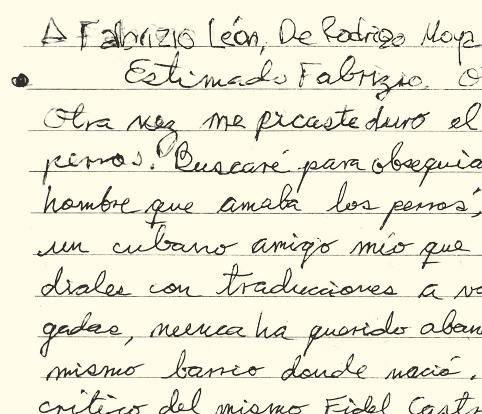 A Fabrizio León, De Rodrigo Moya
Estimado Fabrizio, O
Otra vez me picaste duro el
perros. Buscaré para obsequia
hombre que amaba los perros,
un cubano amigo mío que
diales con traducciones a va
gadas, nunca ha querido aban
mismo barrio donde nació.
crítico del mismo Fidel Castr